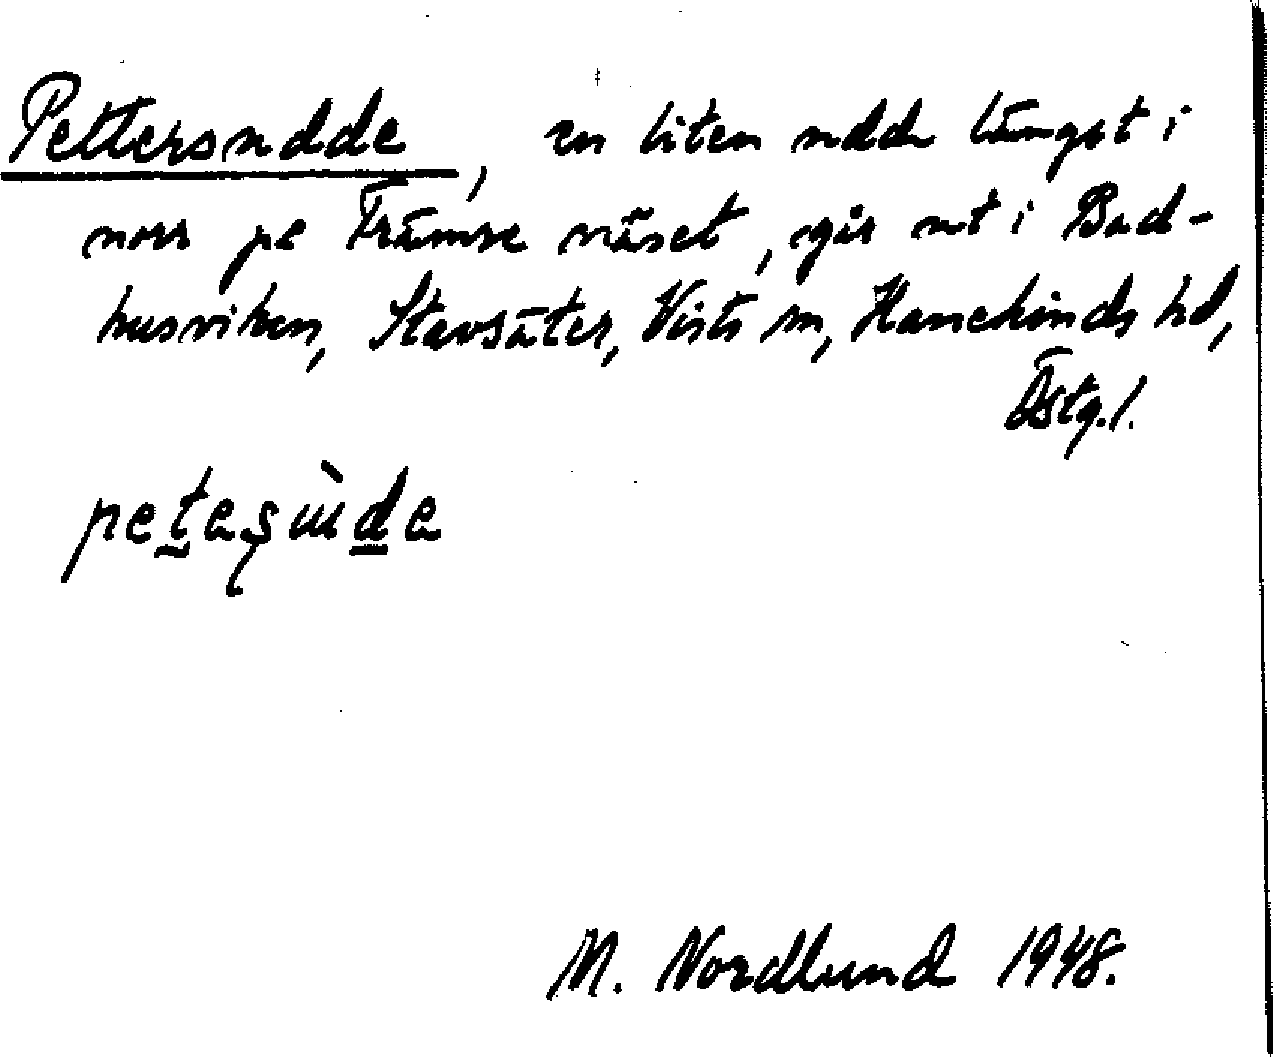 Pettersudde, en liten udde längst i
norr på Främre näset, går ut i Bad-
husviken, Stavsäter, Vists sn, Hanekinds hd,
Östg.l.
petaşùda
M. Nordlund 1948.